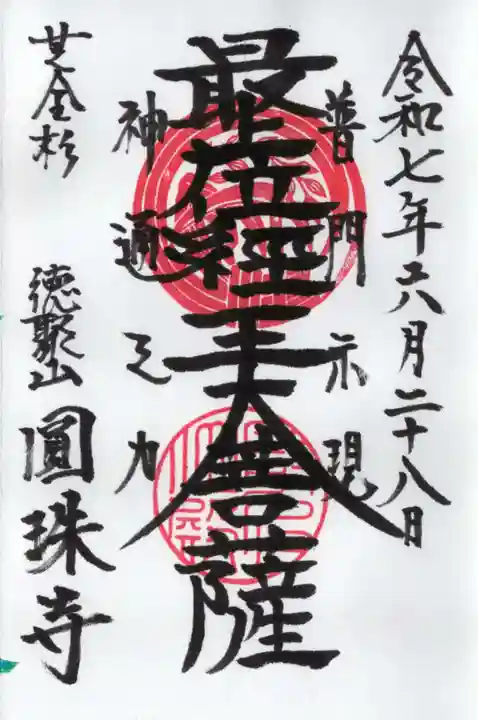 令和七年六月二十八日
普門示現
最上位經王大菩薩
神通之力
芝金杉
徳聚山 圓珠寺